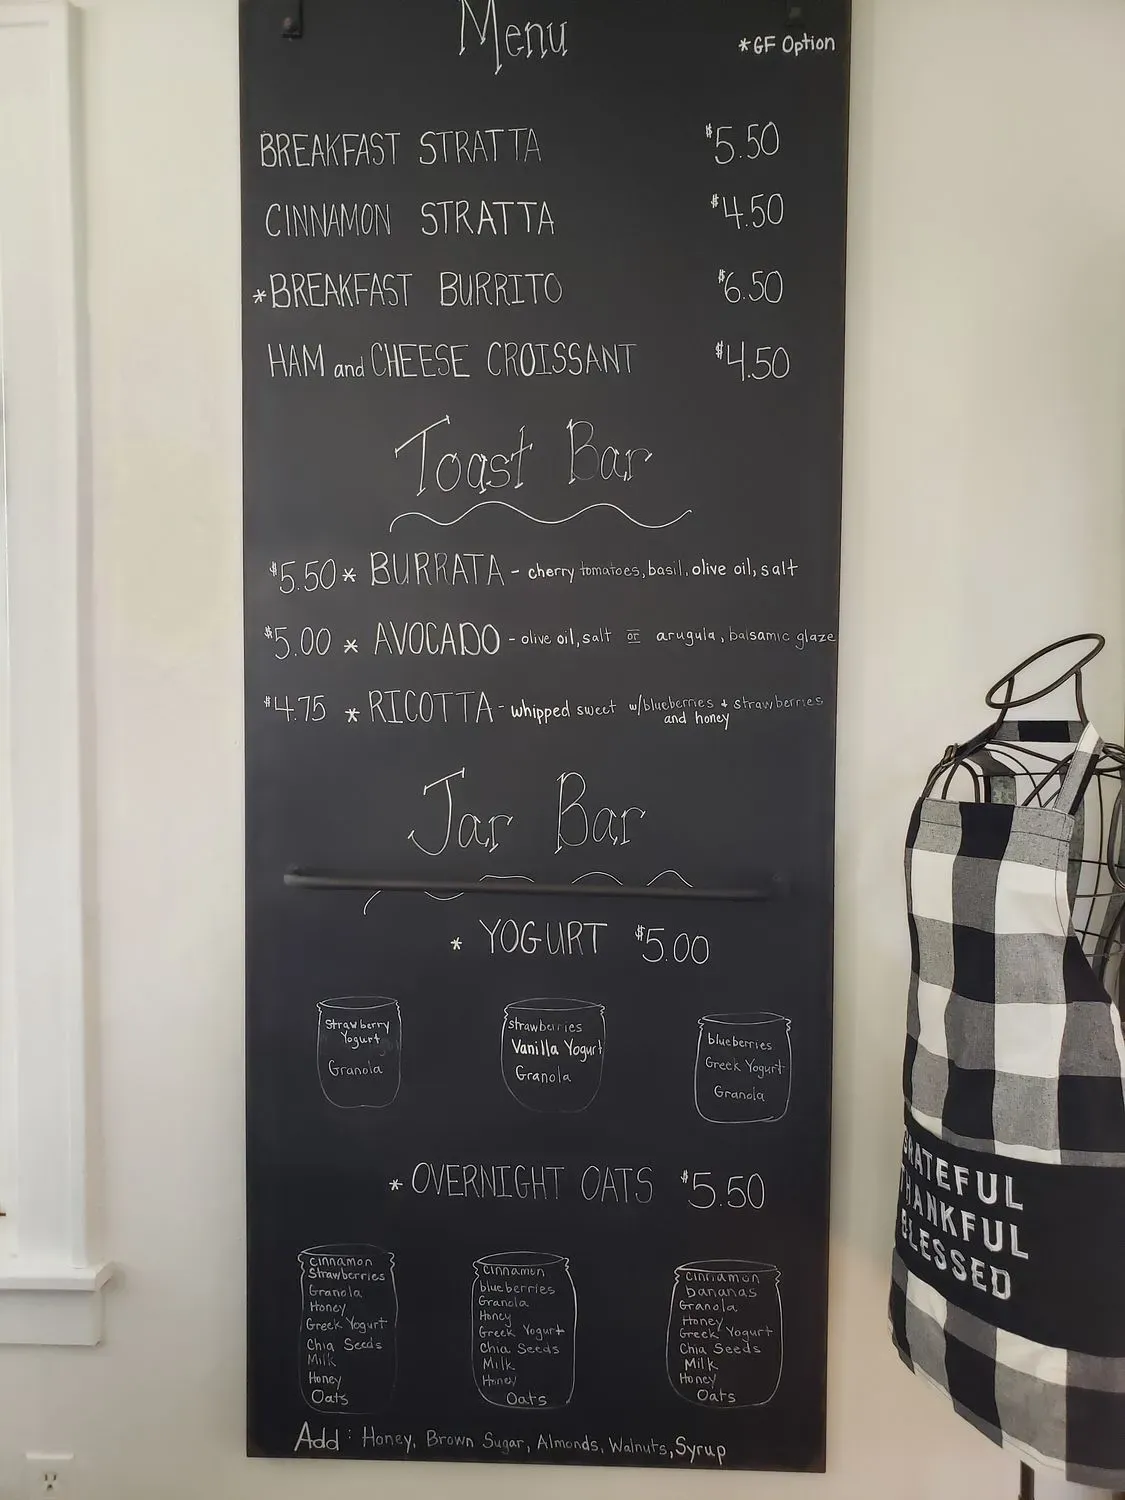 Menu
*GF Option
BREAKFAST STRATTA $5.50
CINNAMON STRATTA $4.50
*BREAKFAST BURRITO $6.50
HAM and CHEESE CROISSANT $4.50
Toast Bar
$5.50 * BURRATA - cherry tomatoes, basil, olive oil, salt
$5.00 * AVOCADO - olive oil, salt or arugula, balsamic glaze
$4.75 * RICOTTA - whipped sweet w/blueberries + strawberries
and honey
Jar Bar
* YOGURT $5.00
Strawberry
Yogurt
Granola
strawberries
Vanilla Yogurt
Granola
blueberries
Greek Yogurt
Granola
* OVERNIGHT OATS $5.50
cinnamon
Strawberries
Granola
Honey
Greek Yogurt
Chia Seeds
Milk
Honey
Oats
cinnamon
blueberries
Granola
Honey
Greek Yogurt
Chia Seeds
Milk
Honey
Oats
cinnamon
bananas
Granola
Honey
Greek Yogurt
Chia Seeds
Milk
Honey
Oats
Add: Honey, Brown Sugar, Almonds, Walnuts, Syrup
GRATEFUL
THANKFUL
BLESSED